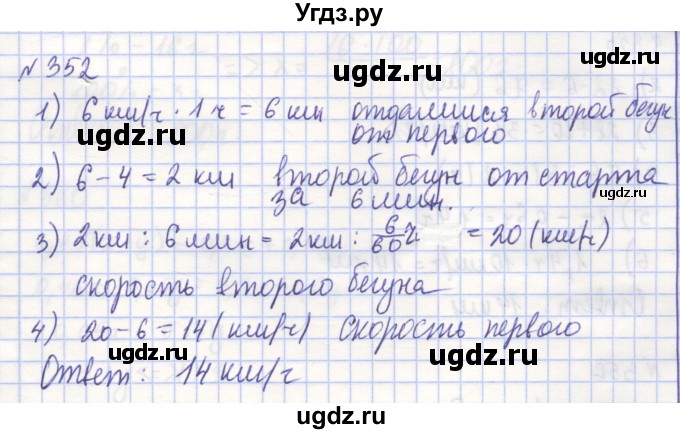 Угдз.ру
№ 352
1) 6 км/ч · 1 ч = 6 км отдалился второй бегун
от первого
2) 6 - 4 = 2 км второй бегун от старта
за 6 мин.
3) 2 км : 6 мин = 2 км : 6/60 ч = 20 (км/ч)
скорость второго бегуна
4) 20 - 6 = 14 (км/ч) скорость первого
Ответ: 14 км/ч
ugdz.ru
ugdz.ru
ugdz.ru
ugdz.ru
ugdz.ru
ugdz.ru
ugdz.ru
ugdz.ru
ugdz.ru